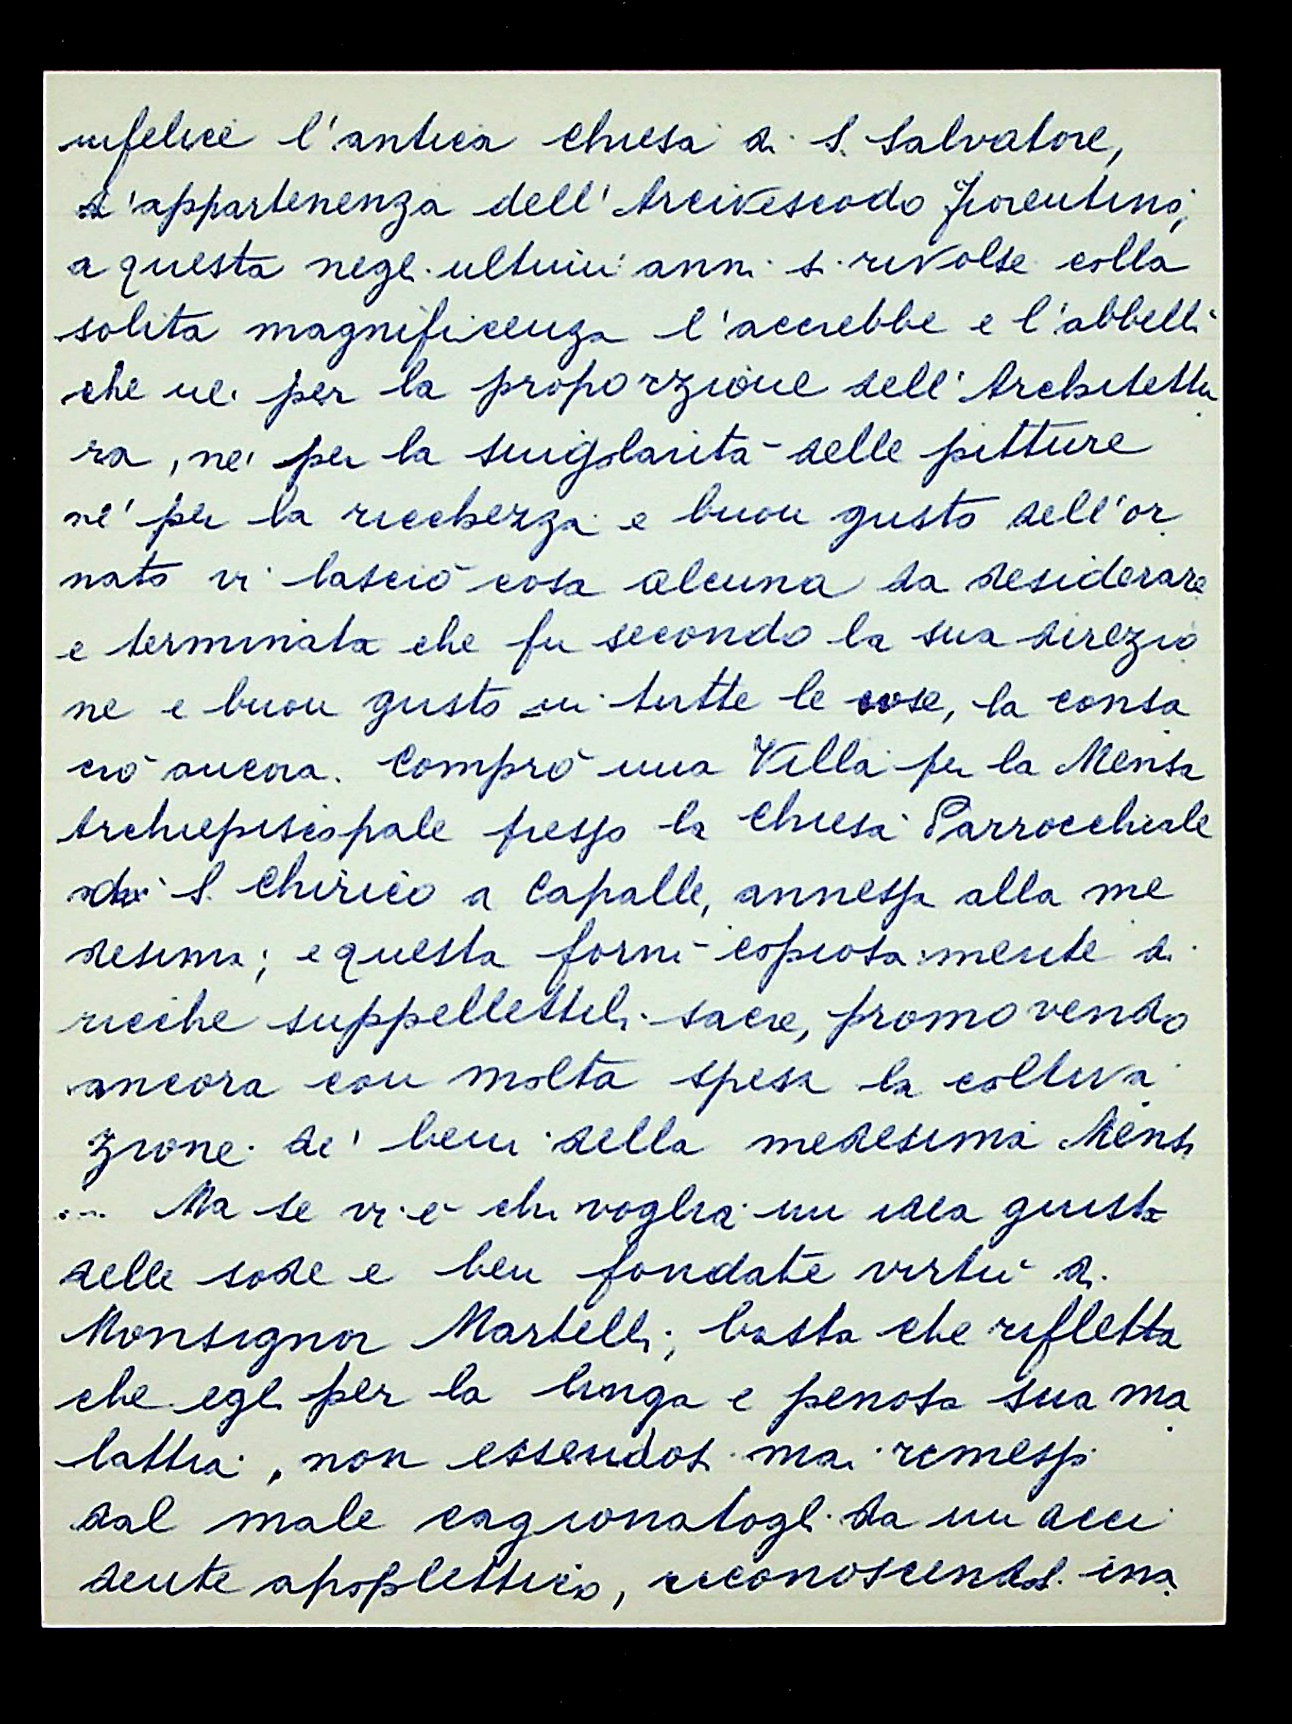 infelice l'antica Chiesa di S. Salvatore,
d'appartenenza dell'Arcivescovdo Fiorentino;
a questa negli ultimi anni si rivolse colla
solita magnificenza l'accrebbe e l'abbellì
che nè per la proporzione dell'Architettu
ra, nè per la singolarità delle pitture
nè per la ricchezza e buon gusto dell'or
nato vi lasciò cosa alcuna da desiderare
e terminata che fu secondo la sua direzio
ne e buon gusto in tutte le cose, la consa
crò ancora. Comprò una Villa per la Mensa
Archiepiscopale presso la Chiesa Parrocchiale
di S. Chirico a Capalle, annessa alla me
desima; e questa fornì copiosamente di
ricche suppellettili sacre, promovendo
ancora con molta spesa la coltiva
zione de' beni della medesima Mensa
... Ma se vi è chi voglia un idea giusta
delle sode e ben fondate virtù di
Monsignor Martelli; basta che rifletta
che egli per la lunga e penosa sua ma
lattia, non essendosi mai rimesso
dal male cagionatogli da un acci
dente apoplettico, riconoscendosi ina